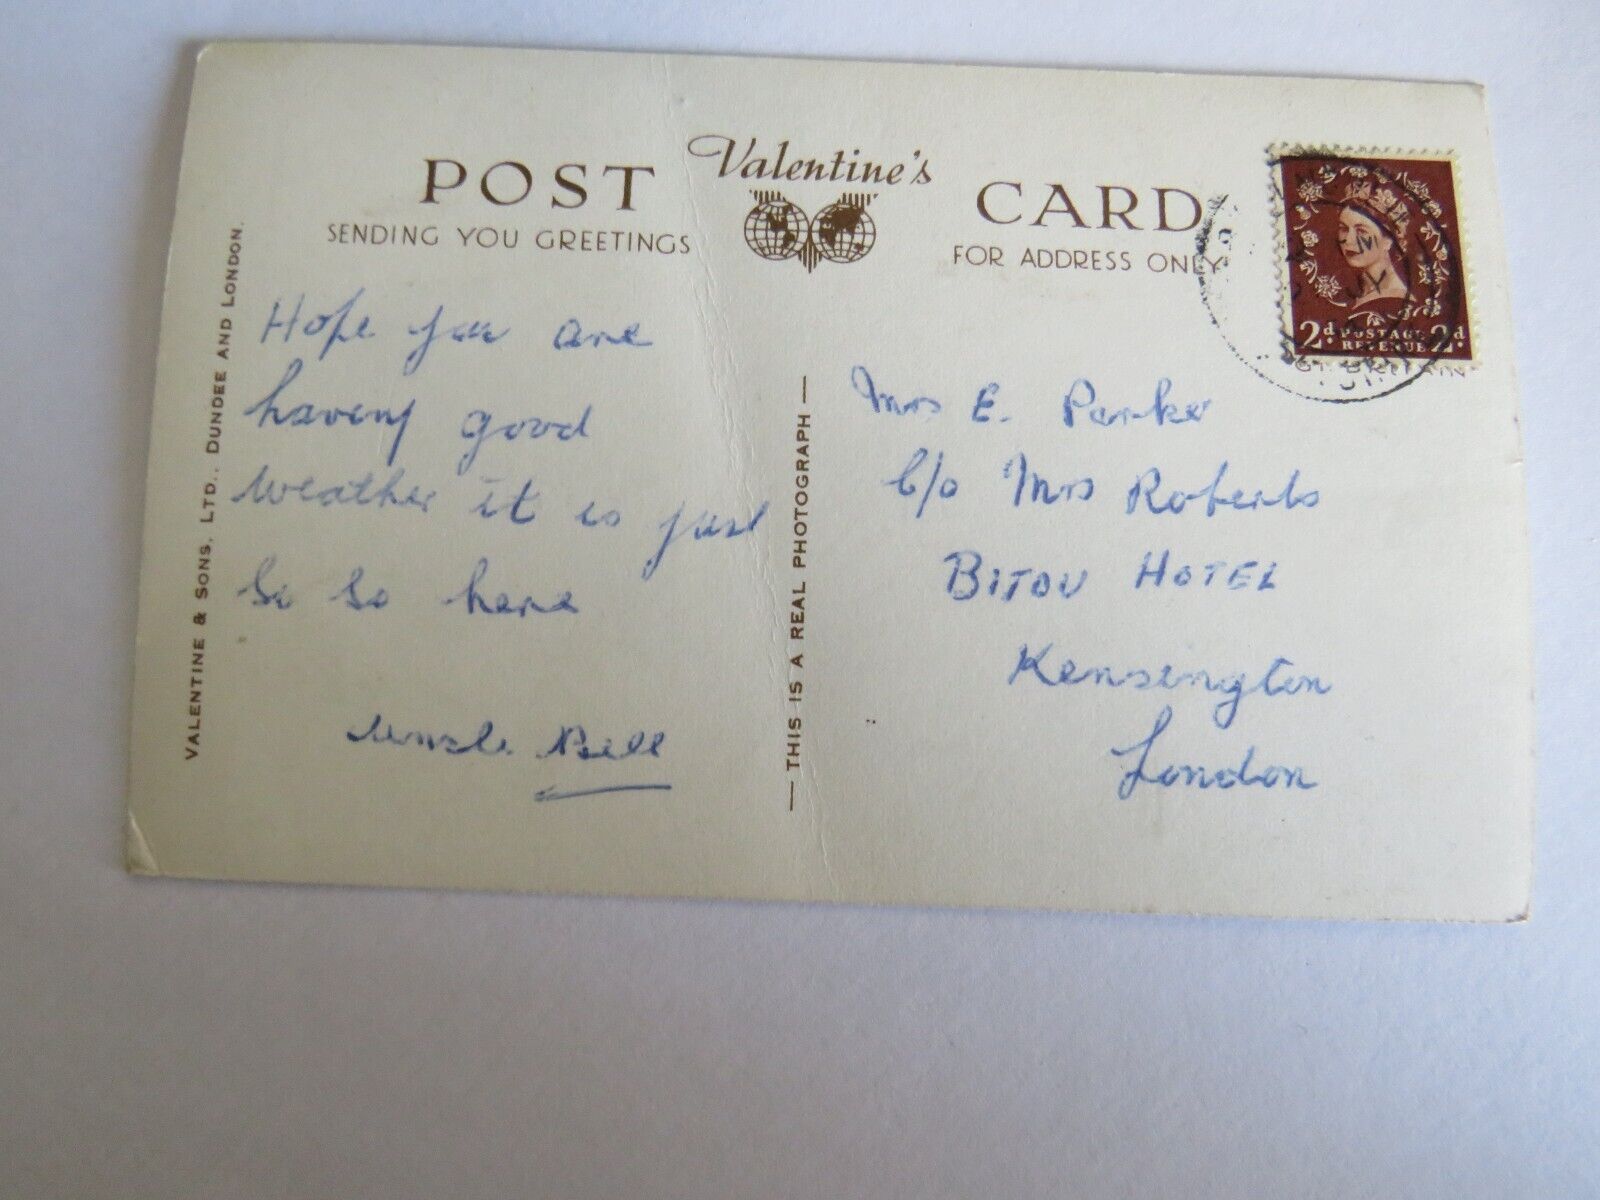 POST Valentine's CARD
SENDING YOU GREETINGS
FOR ADDRESS ONLY
2d. POSTAGE 2d.
REVENUE
GT. BRITAIN
VALENTINE & SONS, LTD., DUNDEE AND LONDON.
Hope you are
having good
weather it is just
so so here
Uncle Bill
— THIS IS A REAL PHOTOGRAPH —
Mrs E. Parker
C/o Mrs Roberts
BITOU HOTEL
Kensington
London